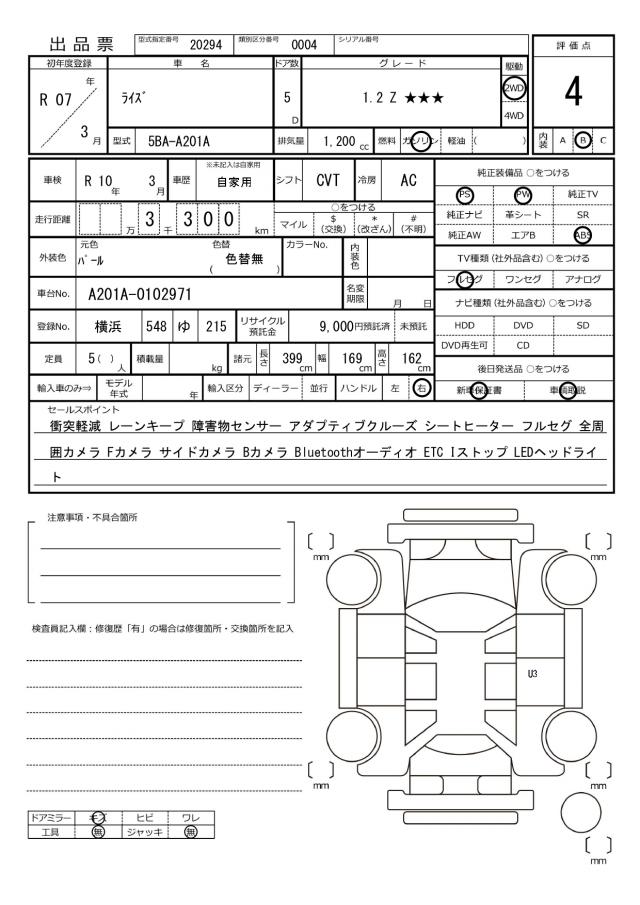 出品票 型式指定番号 20294 類別区分番号 0004 シリアル番号
評価点
初年度登録 車名 ドア数 グレード 駆動
R 07 年 ライズ 5 D 1.2 Z ★★★ 2WD 4
3 月 4WD
型式 5BA-A201A 排気量 1,200 cc 燃料 ガソリン 軽油 ( ) 内装 A B C
車検 R 10 年 3 月 車歴 ※未記入は自家用 自家用 シフト CVT 冷房 AC
純正装備品 ○をつける
PS PW 純正TV
走行距離 万 3 千 300 km ○をつける
マイル $(交換) *(改ざん) #(不明)
純正ナビ 革シート SR
純正AW エアB ABS
外装色 元色 パール 色替 色替無 ( ) カラーNo. 内装色
TV種類 (社外品含む) ○をつける
フルセグ ワンセグ アナログ
車台No. A201A-0102971 名変期限 月 日
ナビ種類 (社外品含む) ○をつける
登録No. 横浜 548 ゆ 215 リサイクル預託金 9,000円預託済 未預託
HDD DVD SD
DVD再生可 CD
定員 5 ( ) 人 積載量 kg 諸元 長さ 399 cm 幅 169 cm 高さ 162 cm
後日発送品 ○をつける
輸入車のみ⇒ モデル年式 年 輸入区分 ディーラー 並行 ハンドル 左 右
新車保証書 車輌取説
セールスポイント
衝突軽減 レーンキープ 障害物センサー アダプティブクルーズ シートヒーター フルセグ 全周
囲カメラ Fカメラ サイドカメラ Bカメラ Bluetoothオーディオ ETC Iストップ LEDヘッドライ
ト
注意事項・不具合箇所
〔 〕 mm
〔 〕 mm
検査員記入欄：修復歴「有」の場合は修復箇所・交換箇所を記入
U3
〔 〕 mm
〔 〕 mm
ドアミラー キズ ヒビ ワレ
工具 無 ジャッキ 無
〔 〕 mm